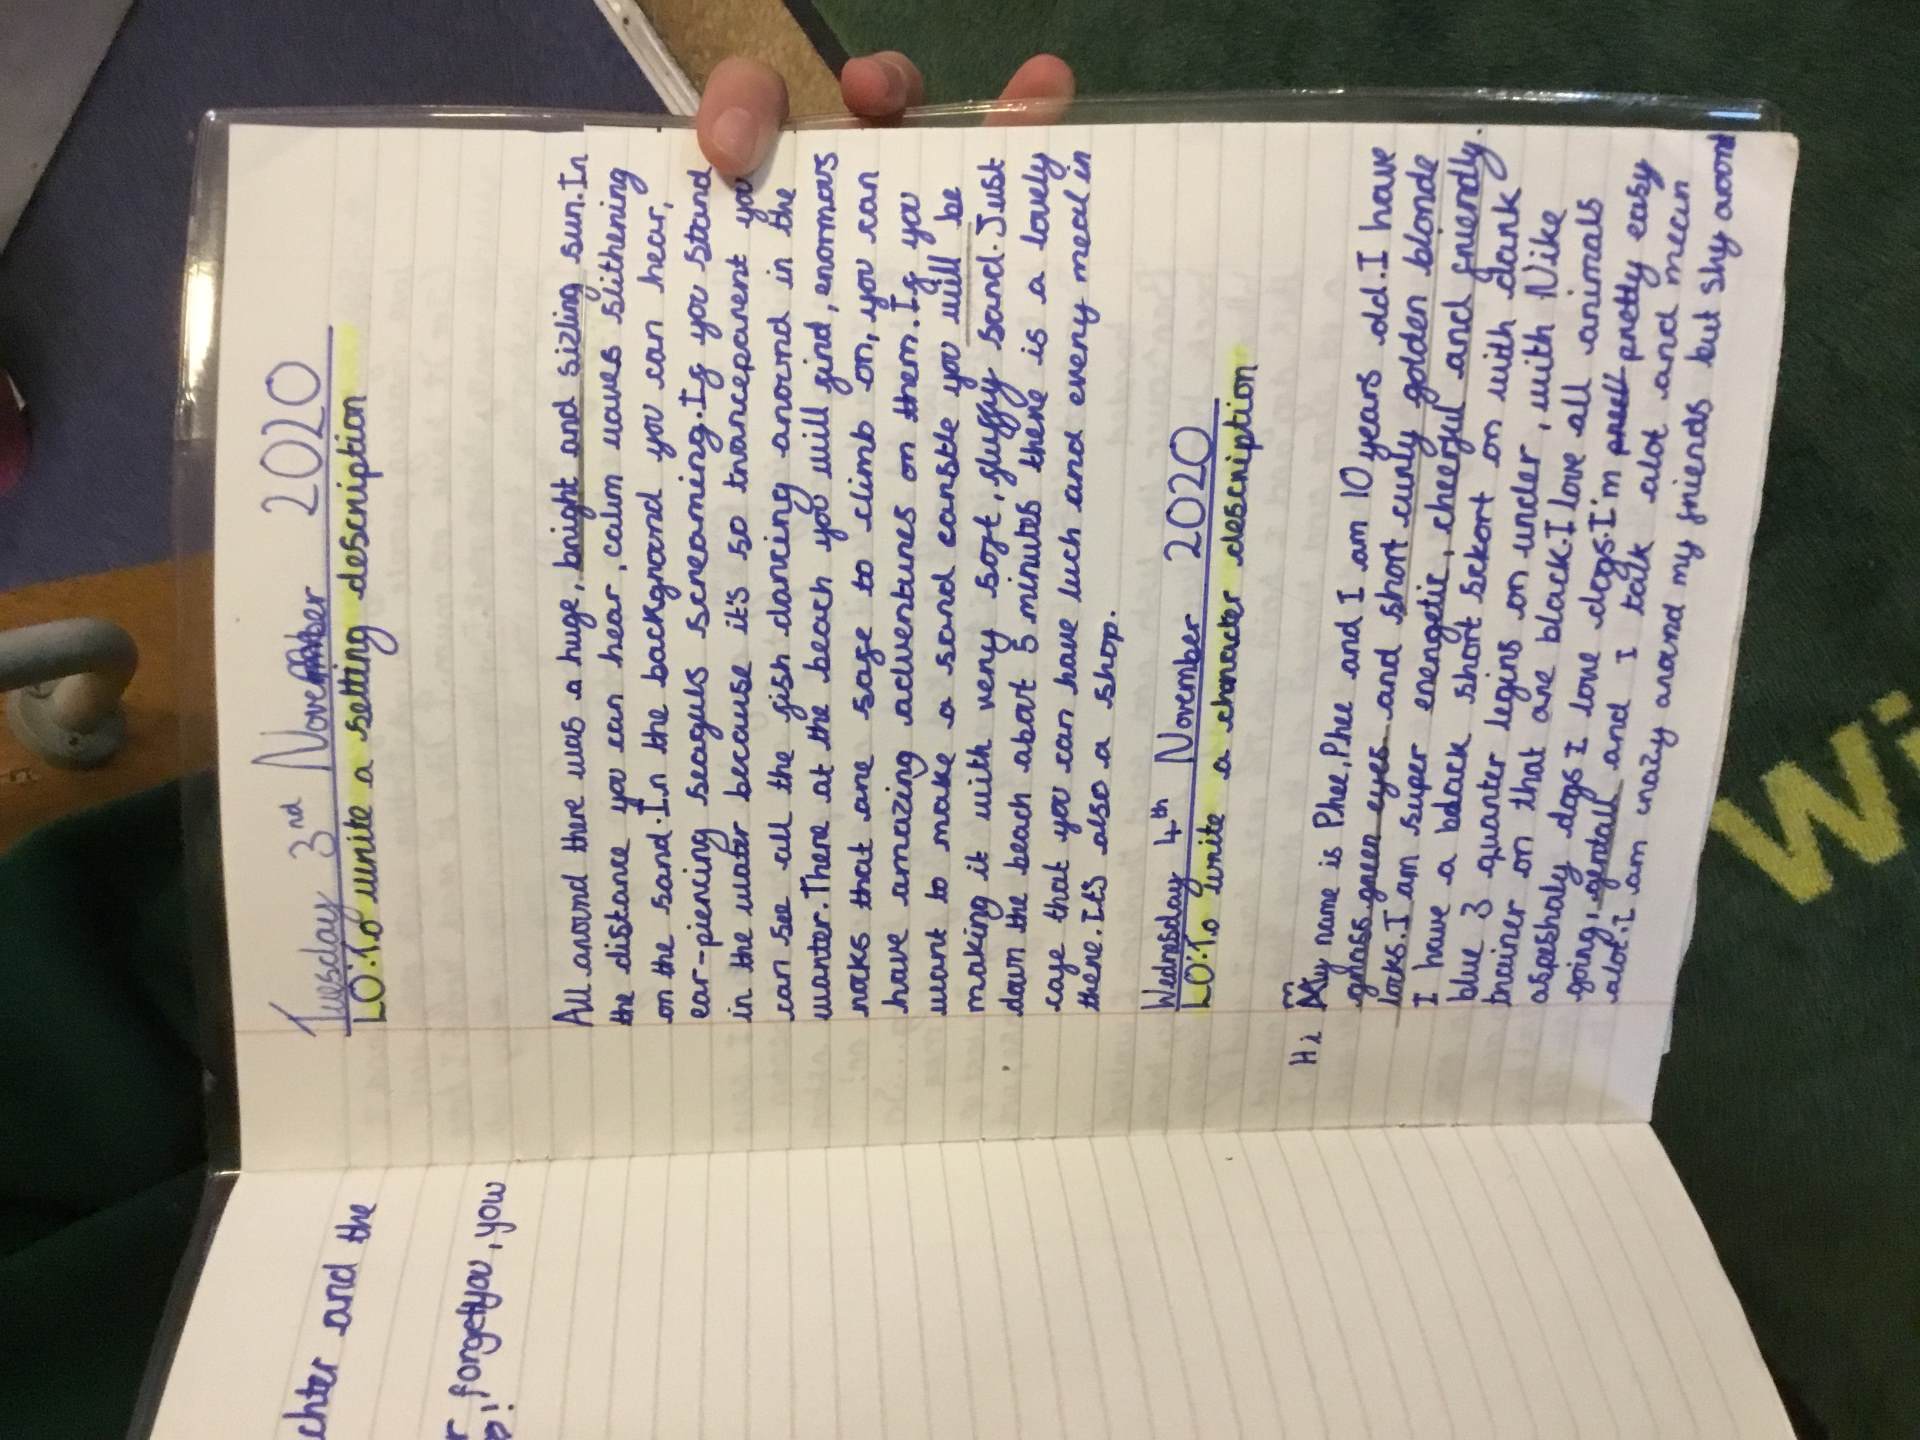 Tuesday 3nd November 2020
LO:To write a setting description
All around there was a huge, bright and sizling sun. In
the distance you can hear, calm waves slithening
on the sand. In the background you can hear,
ear-piercing seaguls screaming. If you stand
in the water because it's so tranceparent you
can see all the fish dancing around in the
warter. There at the beach you will find, enormous
rocks that are safe to climb on, you can
have amazing adventures on them. If you
want to make a sand canstle you will be
making it with very soft, fluffy sand. Just
down the beach about 5 minutes there is a lovely
cafe that you can have luch and every meal in
there. It's also a shop.
Wednesday 4th November 2020
LO:To write a character description
Hi my name is Phee, Phee and I am 10 years old. I have
grass green eyes and short curly golden blonde
looks. I am super energetic, cheerful and friendly.
I have a black short sckort on with dark
blue 3 quarter legins on under, with Nike
trainer on that are black. I love all animals
aspeshaly dogs I love dogs. I'm pretty easy
going, gentall and I talk alot and mean
alot. i am crazy around my friends but shy around
chter and the
, forget you, you
Wi